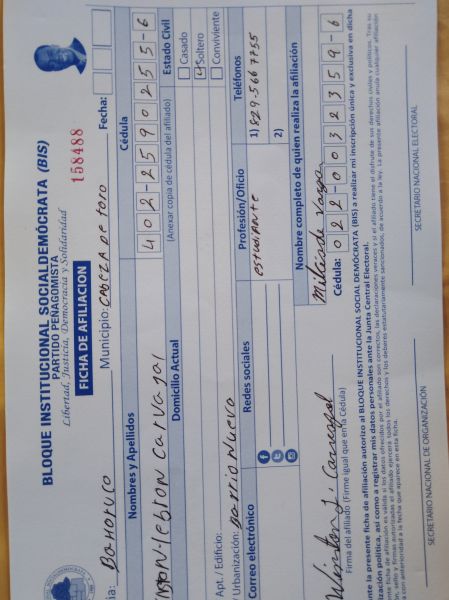 BLOQUE INSTITUCIONAL SOCIALDEMÓCRATA (BIS)
PARTIDO PEÑAGOMISTA
Libertad, Justicia, Democracia y Solidaridad
158488
FICHA DE AFILIACION
Fecha:
ia: Bahoruco Municipio: CABEZA DE TORO
Nombres y Apellidos Cédula
Lebron Carvajal 402-2590255-6
(Anexar copia de cédula del afiliado)
Domicilio Actual Estado Civil
Casado
Soltero
Conviviente
Apt. / Edificio:
Urbanización: Barrio Nuevo
Correo electrónico Redes sociales Profesión/Oficio Teléfonos
estudiante 1) 829-566 7755
2)
Nombre completo de quien realiza la afiliación
Cédula: 022-0032359-6
Firma del afiliado (Firme igual que en la Cédula)
nte la presente ficha de afiliación autorizo al BLOQUE INSTITUCIONAL SOCIAL DEMÓCRATA (BIS) a realizar mi inscripción única y exclusiva en dicha
ización política, así como a registrar mis datos personales ante la Junta Central Electoral.
SECRETARIO NACIONAL DE ORGANIZACIÓN SECRETARIO NACIONAL ELECTORAL